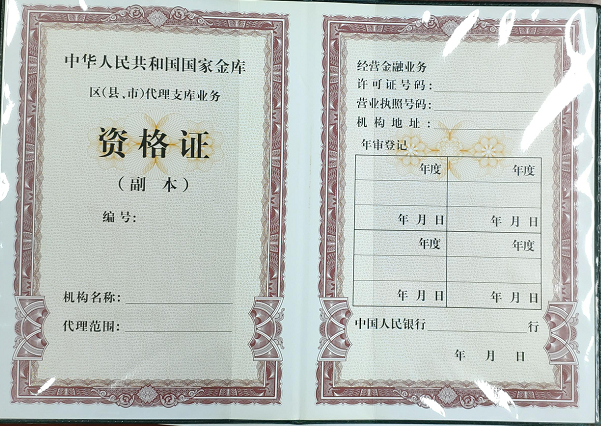 中华人民共和国国家金库
区(县、市)代理支库业务
资格证
(副 本)
编号:
机构名称:
代理范围:
经营金融业务
许可证号码:
营业执照号码:
机构地址:
年审登记
年度 年度
年 月 日 年 月 日
年度 年度
年 月 日 年 月 日
中国人民银行 行
年 月 日